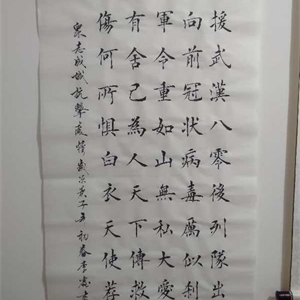 援武漢八零後列隊出
向前冠狀病毒厲似刹
軍令重如山無私大愛
有舍己為人天下傳救
傷何所懼白衣天使荐
衆志成城抗擊疫情歲次庚子年初春李